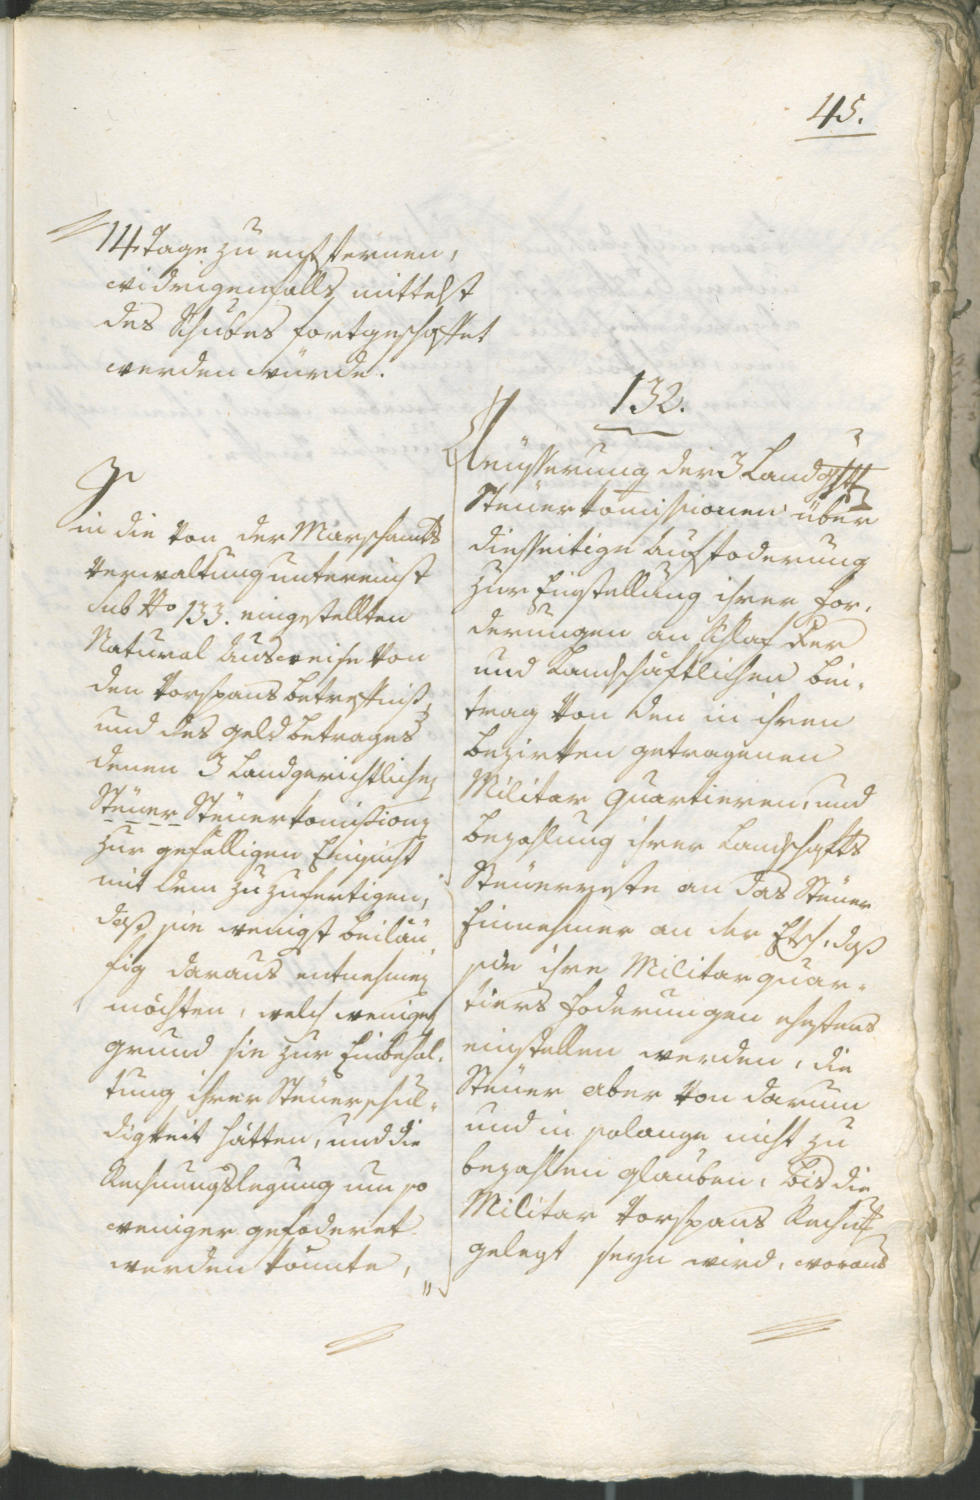 45.
14 Tage zu entfernen,
widrigenfalls mittelst
des Schubes fortgeschaffet
werden würde.
in die von der Marschamts
Verwaltung untereinst
sub No 133. eingestellten
Natural Ausweise von
den Vorspans Betreffniß,
und des Geld betrages
denen 3 Landgerichtlichen
Steuer Steuerkomißionen
zur gefälligen Einsicht
mit dem zuzufertigen,
daß sie wenigst beiläu
fig daraus entnehmen
möchten, welch wenigen
grund sie zur Einbehal-
tung ihrer Steuerschul-
digkeit hätten, und die
Rechnungslegung um so
weniger gefoderet
werden könnte,
132.
Aeüsserung der 3 Landgchtl
Steuerkomissionen über
diesseitige Aufforderung
zur Einstellung ihrer For-
derungen an Schlaf Xer
und Landschäftlichen Bei-
trag von den in ihren
Bezirken getragenen
Militar Quartieren, und
Bezahlung ihrer Landschafts
Steuerreste an das Steuer
Einnehmer an der Etsch, daß
sie ihre Militar quar-
tiers foderungen ehestens
einstellen werden, die
Steuer aber von darum
und in solange nicht zu
bezahlen glauben, bis die
Militar Vorspans Rechnung
gelegt seyn wird, woraus